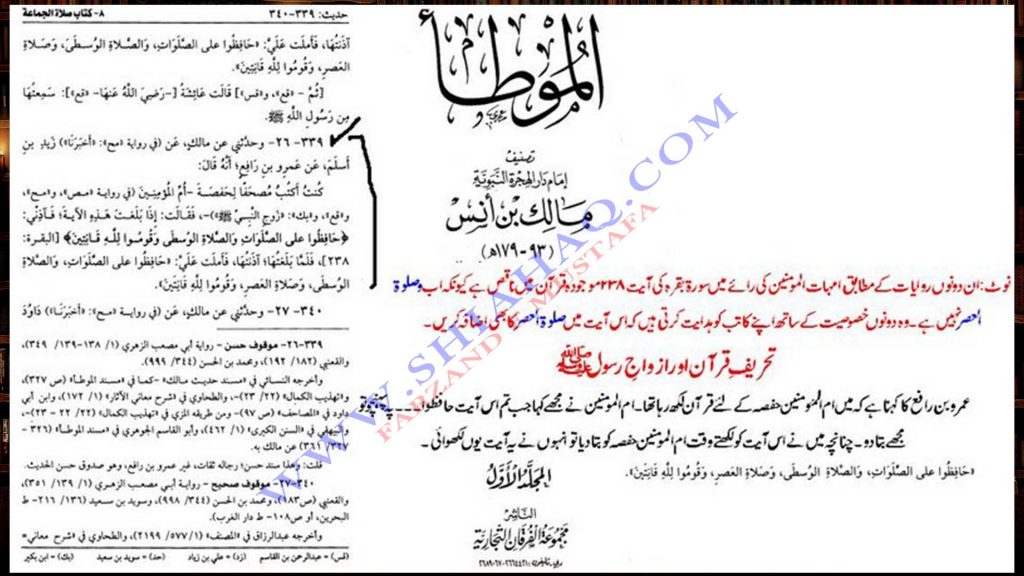 ٨- كتاب صلاة الجماعة
حديث: ٣٣٩-٣٤٠
آذَنْتُهَا، فَأَملَت عَلَيَّ: «حَافِظُوا على الصَّلَوَاتِ، وَالصَّلاةِ الوُسطَى، وَصَلاةِ
العَصرِ، وَقُومُوا لِلَّهِ قَانِتِينَ».
[ثُمَّ - «قع»، و«قس»] قَالَت عَائِشَةُ [-رَضِيَ اللَّهُ عَنهَا- «قع»]: سَمِعتُهَا
مِن رَسُولِ اللَّهِ ﷺ.
٣٣٩- ٢٦- وحدَّثني عن مالكٍ، عَن (في رواية «مح»: «أَخبَرَنَا») زَيدِ بنِ
أَسلَمَ، عَن عَمرِو بنِ رَافِعٍ؛ أَنَّهُ قَالَ:
كُنتُ أَكتُبُ مُصحَفًا لِحَفصَةَ -أُمِّ المُؤمِنِينَ (في رواية «مص»، و«مح»،
و«قع»، و«بك»: «زَوجِ النَّبِيِّ ﷺ»)-، فَقَالَت: إِذَا بَلَغتَ هَذِهِ الآيَةَ؛ فَآذِنِّي:
﴿حَافِظُوا على الصَّلَوَاتِ والصَّلاةِ الوُسطَى وَقُومُوا لِلَّهِ قَانِتِينَ﴾ [البقرة:
٢٣٨]، فَلَمَّا بَلَغتُهَا؛ آذَنتُهَا، فَأَملَت عَلَيَّ: «حَافِظُوا على الصَّلَوَاتِ، وَالصَّلاةِ
الوُسطَى، وَصَلاةِ العَصرِ، وَقُومُوا لِلَّهِ قَانِتِينَ».
٣٤٠- ٢٧- وحدَّثني عن مالكٍ، عَن (في رواية «مح»: «أَخبَرَنَا») دَاوُدَ
٣٣٩-٢٦- موقوف حسن - رواية أبي مصعب الزهري (١/ ١٣٨-١٣٩/ ٣٤٩)،
والقعنبي (١٨٢/ ١٩٢)، ومحمد بن الحسن (٣٤٤/ ٩٩٩).
وأخرجه النسائي في «مسند حديث مالك» -كما في «مسند الموطأ» (ص ٣٢٧)،
و«تهذيب الكمال» (٢٢/ ٢٣)-، والطحاوي في «شرح معاني الآثار» (١/ ١٧٢)، وابن أبي
داود في «المصاحف» (ص ٩٧)- ومن طريقه المزي في «تهذيب الكمال» (٢٢/ ٢٢ - ٢٣)-،
والبيهقي في «السنن الكبرى» (١/ ٤٦٢)، وأبو القاسم الجوهري في «مسند الموطأ» (٣٢٦-
٣٢٧/ ٣٦١) عن مالك به.
قلت: وهذا سند حسن؛ رجاله ثقات، غير عمرو بن رافع، وهو صدوق حسن الحديث.
٣٤٠-٢٧- موقوف صحيح - رواية أبي مصعب الزهري (١/ ١٣٩/ ٣٥١)،
والقعنبي (ص١٨٣)، ومحمد بن الحسن (٣٤٤/ ٩٩٨)، وسويد بن سعيد (١٣٦/ ٢١٦- ط
البحرين، أو ص١٠٨- ط دار الغرب).
وأخرجه عبدالرزاق في «المصنف» (١/ ٥٧٧/ ٢١٩٩)، والطحاوي في «شرح معاني»
(قس) = عبدالرحمن بن القاسم (زد) = علي بن زياد (حد) = سويد بن سعيد (بك) = ابن بكير
الموطأ
تصنيف
إمام دار الهجرة النبوية
مالك بن أنس
(٩٣-١٧٩هـ)
نوٹ: ان دونوں روایات کے مطابق امہات المومنین کی رائے میں سورۃ بقرہ کی آیت ۲۳۸ موجودہ قرآن میں ناقص ہے کیونکہ اب وصلوۃ
العصر نہیں ہے۔ وہ دونوں خصوصیت کے ساتھ اپنے کاتب کو ہدایت کرتی ہیں کہ اس آیت میں صلوۃ العصر کا بھی اضافہ کریں۔
تحریف قرآن اور ازواج رسول ﷺ
عمرو بن رافع کا کہنا ہے کہ میں ام المؤمنین حفصہ کے لئے قرآن لکھ رہا تھا۔ ام المومنین نے مجھے کہا جب تم اس آیت حافظوا پہ پہنچو تو
مجھے بتا دو۔ چنانچہ میں نے اس آیت کو لکھتے وقت ام المومنین حفصہ کو بتا دیا تو انہوں نے یہ آیت یوں لکھوائی۔
«حَافِظُوا على الصَّلَوَاتِ، وَالصَّلاةِ الوُسطَى، وَصَلاةِ العَصرِ، وَقُومُوا لِلَّهِ قَانِتِينَ».
المجلد الأول
الناشر
مجموعة الفرقان التجارية
WWW.SHIAHAQ.COM
FARZAND MUSTAFA